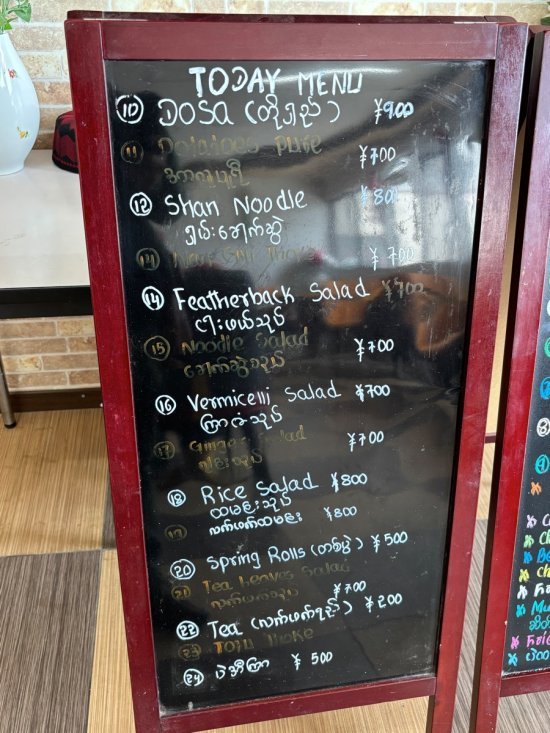 TODAY MENU
⑩ DOSA (တိုရှည်) ¥900
⑪ Potatoes Pure ¥700
⑫ Shan Noodle ¥80
ရှမ်းခေါက်ဆွဲ
¥700
⑭ Featherback Salad ¥700
ငါးဖယ်သုပ်
⑮ Noodle Salad ¥700
ခေါက်ဆွဲသုပ်
⑯ Vermicelli Salad ¥700
ကြာဇံသုပ်
⑰ Ginger Salad ¥700
⑱ Rice Salad ¥800
ထမင်းသုပ်
လက်ဖက်ထမင်း ¥800
⑳ Spring Rolls (တစ်ပွဲ) ¥500
㉑ Tea Leaves Salad
လက်ဖက်သုပ် ¥700
㉒ Tea (လက်ဖက်ရည်) ¥200
㉓ Tofu Thoke
㉔ ပဲအီကြာ ¥500